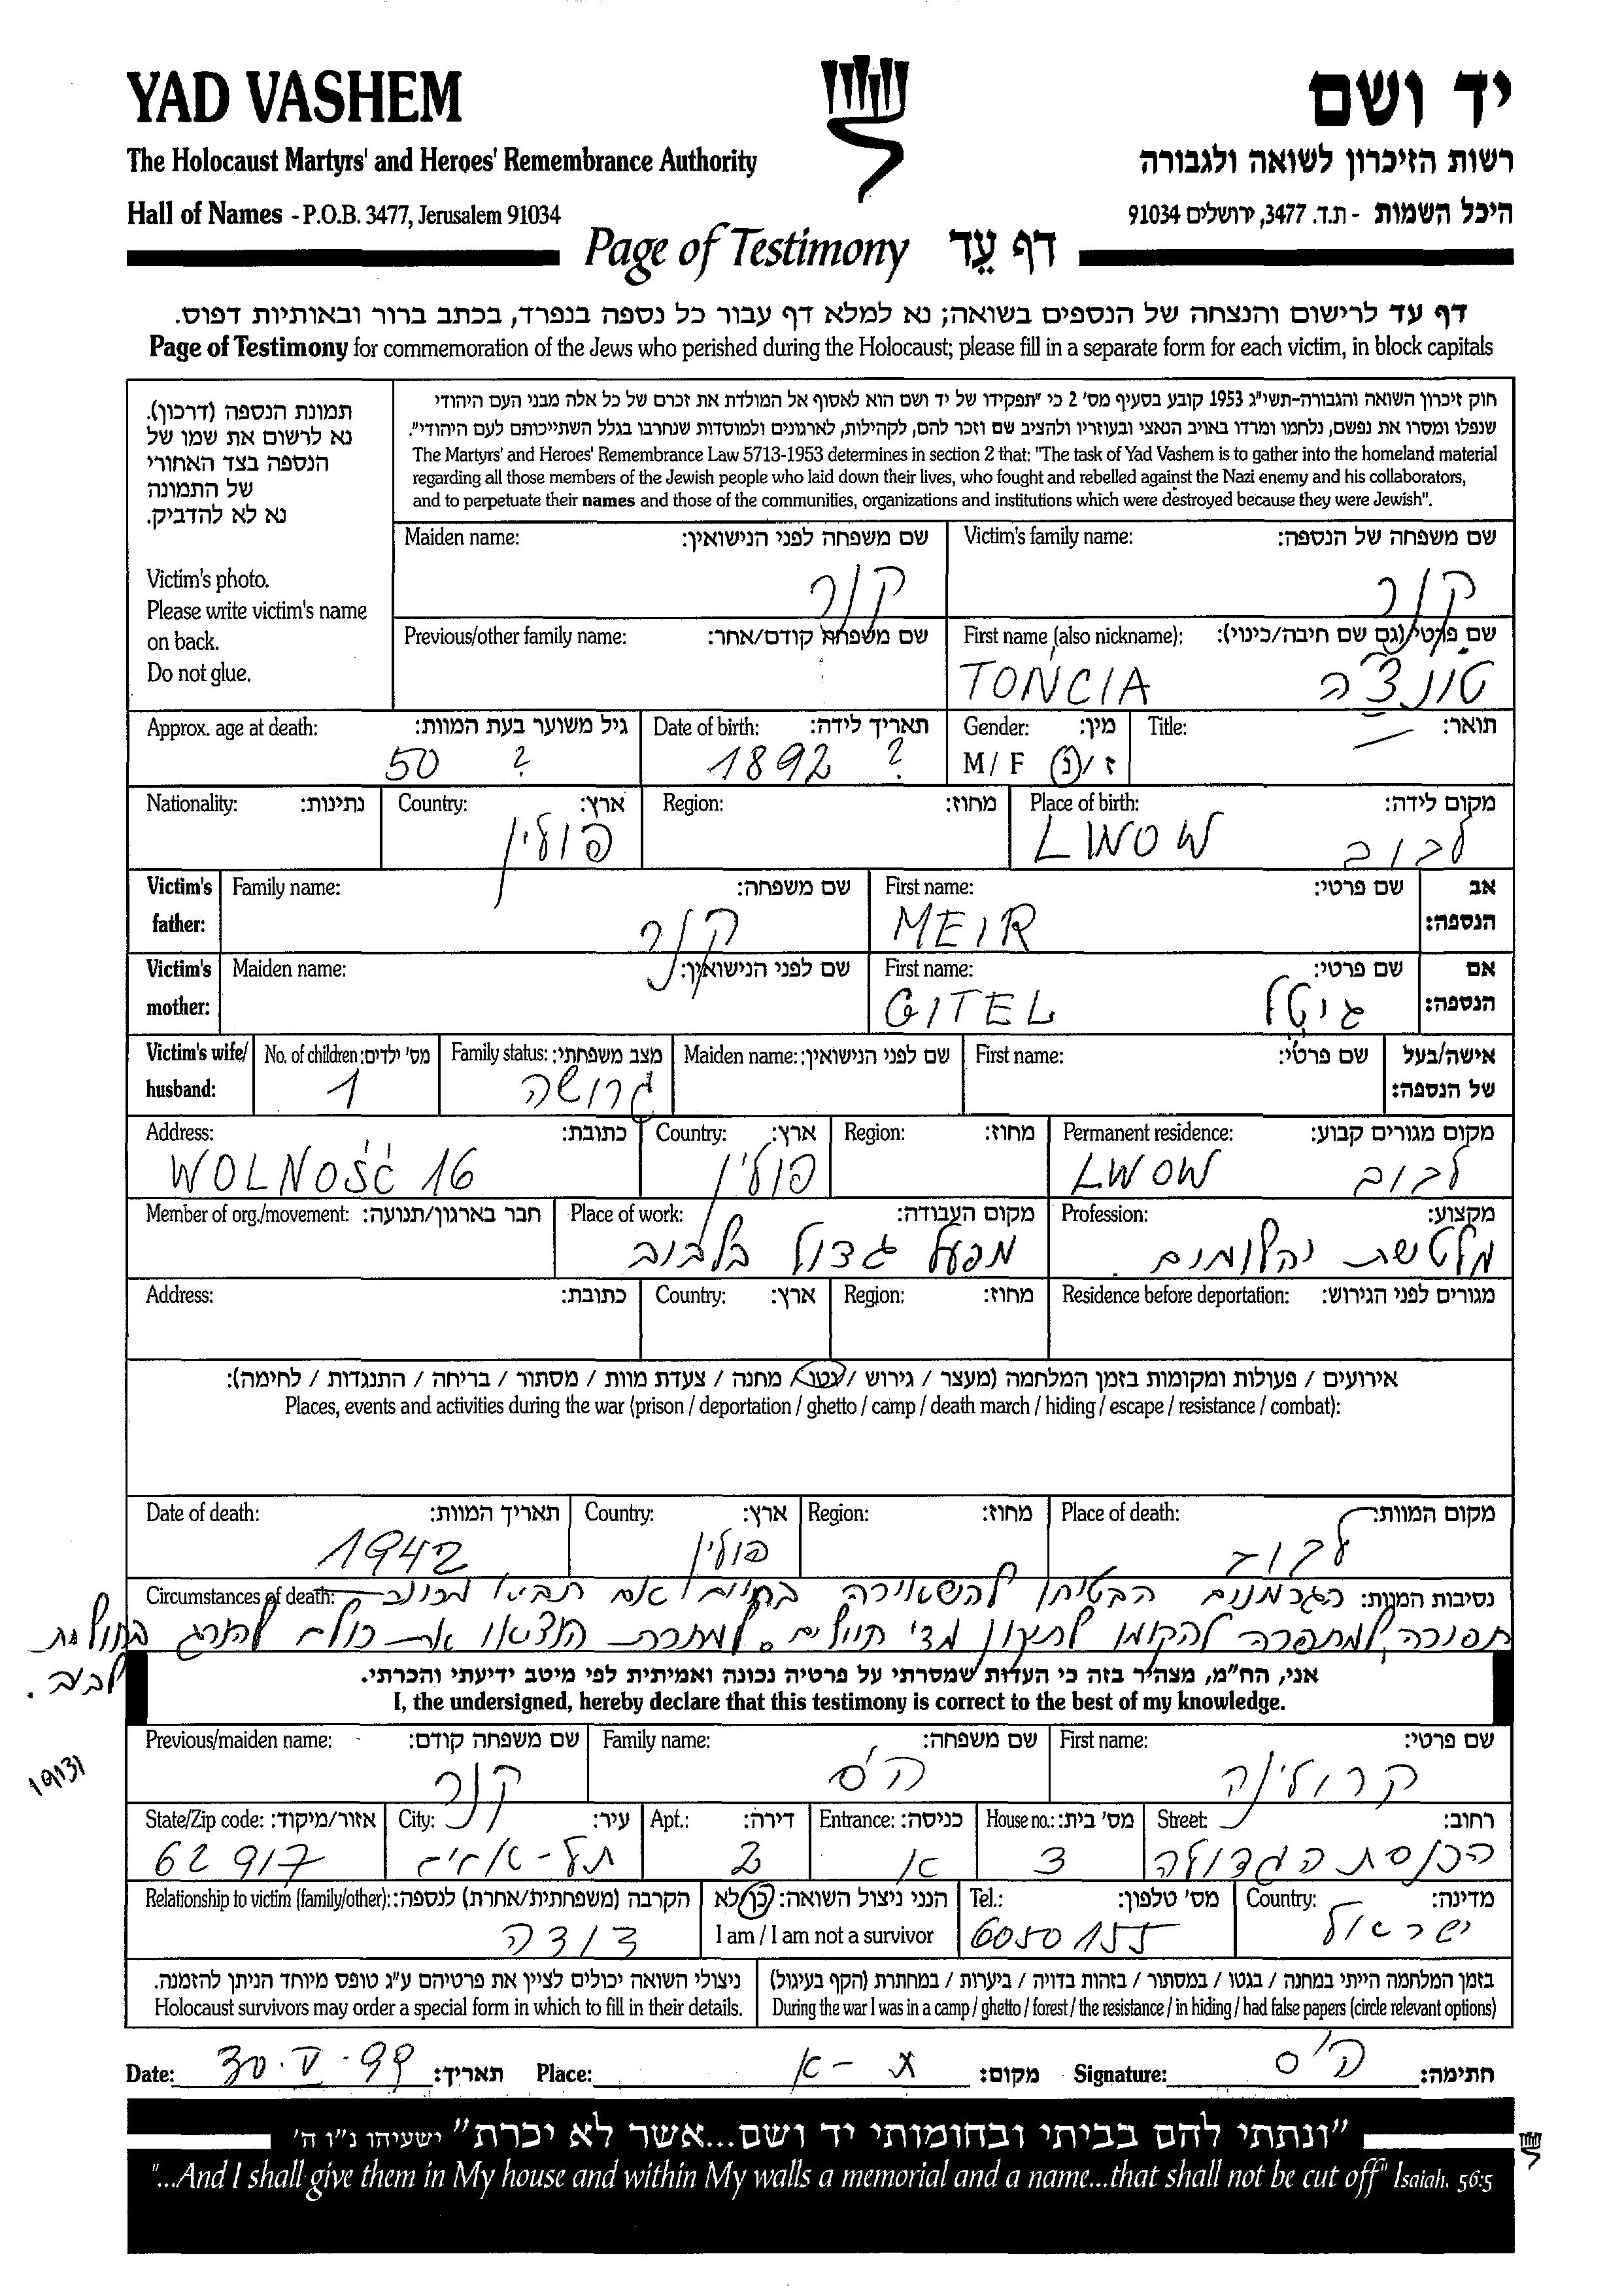 YAD VASHEM
יד ושם
The Holocaust Martyrs' and Heroes' Remembrance Authority
רשות הזיכרון לשואה ולגבורה
Hall of Names - P.O.B. 3477, Jerusalem 91034
היכל השמות - ת.ד. 3477, ירושלים 91034
Page of Testimony דף עֵד
דף עד לרישום והנצחה של הנספים בשואה; נא למלא דף עבור כל נספה בנפרד, בכתב ברור ובאותיות דפוס.
Page of Testimony for commemoration of the Jews who perished during the Holocaust; please fill in a separate form for each victim, in block capitals
תמונת הנספה (דרכון).
נא לרשום את שמו של
הנספה בצד האחורי
של התמונה
נא לא להדביק.
Victim's photo.
Please write victim's name
on back.
Do not glue.
חוק זיכרון השואה והגבורה-תשי"ג 1953 קובע בסעיף מס' 2 כי "תפקידו של יד ושם הוא לאסוף אל המולדת את זכרם של כל אלה מבני העם היהודי
שנפלו ומסרו את נפשם, נלחמו ומרדו באויב הנאצי ובעוזריו ולהציב שם וזכר להם, לקהילות, לארגונים ולמוסדות שנחרבו בגלל השתייכותם לעם היהודי".
The Martyrs' and Heroes' Remembrance Law 5713-1953 determines in section 2 that: "The task of Yad Vashem is to gather into the homeland material
regarding all those members of the Jewish people who laid down their lives, who fought and rebelled against the Nazi enemy and his collaborators,
and to perpetuate their names and those of the communities, organizations and institutions which were destroyed because they were Jewish".
Victim's family name: שם משפחה של הנספה:
קנר
Maiden name: שם משפחה לפני הנישואין:
קנר
First name (also nickname): שם פרטי (גם שם חיבה/כינוי):
TONCIA טונצ'ה
Previous/other family name: שם משפחה קודם/אחר:
Title: תואר:
—
Gender: מין:
M/ F ז /נ
Date of birth: תאריך לידה:
1892 ?
Approx. age at death: גיל משוער בעת המוות:
50 ?
Place of birth: מקום לידה:
LWOW לבוב
Region: מחוז:
Country: ארץ:
פולין
Nationality: נתינות:
Victim's father: אב הנספה:
First name: שם פרטי:
MEIR
Family name: שם משפחה:
קנר
Victim's mother: אם הנספה:
First name: שם פרטי:
GITEL גיטל
Maiden name: שם לפני הנישואין:
Victim's wife/ husband: אישה/בעל של הנספה:
First name: שם פרטי:
Maiden name: שם לפני הנישואין:
Family status: מצב משפחתי:
גרושה
No. of children: מס' ילדים:
1
Permanent residence: מקום מגורים קבוע:
LWOW לבוב
Region: מחוז:
Country: ארץ:
פולין
Address: כתובת:
WOLNOŚĆ 16
Profession: מקצוע:
מלטשת יהלומים.
Place of work: מקום העבודה:
מפעל גדול בלבוב
Member of org./movement: חבר בארגון/תנועה:
Residence before deportation: מגורים לפני הגירוש:
Region: מחוז:
Country: ארץ:
Address: כתובת:
אירועים / פעולות ומקומות בזמן המלחמה (מעצר / גירוש / גטו / מחנה / צעדת מוות / מסתור / בריחה / התנגדות / לחימה):
Places, events and activities during the war (prison / deportation / ghetto / camp / death march / hiding / escape / resistance / combat):
Place of death: מקום המוות:
לבוב
Region: מחוז:
Country: ארץ:
פולין
Date of death: תאריך המוות:
1942
Circumstances of death: נסיבות המוות: הגרמנים הבטיחו להשאירה בחיים אם תביא מכונת
תפירה למתפרה להקומו לתיקון מדי חיילים. למחרת הוציאו את כולם להורג בחולות
לבוב.
אני, הח"מ, מצהיר בזה כי העדות שמסרתי על פרטיה נכונה ואמיתית לפי מיטב ידיעתי והכרתי.
I, the undersigned, hereby declare that this testimony is correct to the best of my knowledge.
First name: שם פרטי:
קרולינה
Family name: שם משפחה:
הס
Previous/maiden name: שם משפחה קודם:
קנר
Street: רחוב:
הכנסת הגדולה
House no.: מס' בית:
3
Entrance: כניסה:
א
Apt.: דירה:
2
City: עיר:
תל-אביב
State/Zip code: אזור/מיקוד:
62917
Country: מדינה:
ישראל
Tel.: מס' טלפון:
6050155
הנני ניצול השואה: כן/לא
I am / I am not a survivor
Relationship to victim (family/other): הקרבה (משפחתית/אחרת) לנספה:
דודה
בזמן המלחמה הייתי במחנה / בגטו / במסתור / בזהות בדויה / ביערות / במחתרת (הקף בעיגול)
During the war I was in a camp / ghetto / forest / the resistance / in hiding / had false papers (circle relevant options)
ניצולי השואה יכולים לציין את פרטיהם ע"ג טופס מיוחד הניתן להזמנה.
Holocaust survivors may order a special form in which to fill in their details.
Date: 30.V.99 תאריך: Place: ת-א מקום: Signature: הס חתימה:
"ונתתי להם בביתי ובחומותי יד ושם...אשר לא יכרת" ישעיהו נ"ו ה'
"...And I shall give them in My house and within My walls a memorial and a name...that shall not be cut off" Isaiah, 56:5